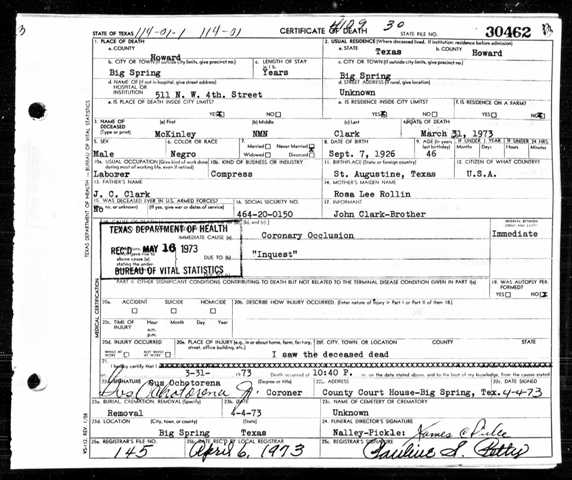 STATE OF TEXAS 114-01-1 114-01 CERTIFICATE OF DEATH 30 STATE FILE NO. 30462
1. PLACE OF DEATH 2. USUAL RESIDENCE (Where deceased lived. If institution: residence before admission)
a. COUNTY Howard a. STATE Texas b. COUNTY Howard
b. CITY OR TOWN (If outside city limits, give precinct no.) c. LENGTH OF STAY c. CITY OR TOWN (If outside city limits, give precinct no.)
Big Spring Years Big Spring
d. NAME OF (If not in hospital, give street address) HOSPITAL OR INSTITUTION 511 N. W. 4th. Street d. STREET ADDRESS (If rural, give location) Unknown
e. IS PLACE OF DEATH INSIDE CITY LIMITS? e. IS RESIDENCE INSIDE CITY LIMITS? f. IS RESIDENCE ON A FARM?
YES X NO YES X NO YES NO X
3. NAME OF DECEASED (Type or print) (a) First (b) Middle (c) Last 4. DATE OF DEATH
McKinley NMN Clark March 31, 1973
5. SEX 6. COLOR OR RACE 7. Married Never Married Widowed Divorced 8. DATE OF BIRTH 9. AGE (In years last birthday) IF UNDER 1 YEAR Months Days IF UNDER 24 HRS. Hours Min.
Male Negro Sept. 7, 1926 46
10a. USUAL OCCUPATION (Give kind of work done during most of working life, even if retired) 10b. KIND OF BUSINESS OR INDUSTRY 11. BIRTHPLACE (State or foreign country) 12. CITIZEN OF WHAT COUNTRY?
Laborer Compress St. Augustine, Texas U.S.A.
13. FATHER'S NAME 14. MOTHER'S MAIDEN NAME
J. C. Clark Rosa Lee Rollin
15. WAS DECEASED EVER IN U.S. ARMED FORCES? 16. SOCIAL SECURITY NO. 17. INFORMANT
No (Yes, no, or unknown) (If yes, give war or dates of service) 464-20-0150 John Clark-Brother
TEXAS DEPARTMENT OF HEALTH
IMMEDIATE CAUSE (a) Coronary Occlusion Immediate
REC'D MAY 16 1973
DUE TO (b) "Inquest"
BUREAU OF VITAL STATISTICS
PART II. OTHER SIGNIFICANT CONDITIONS CONTRIBUTING TO DEATH BUT NOT RELATED TO THE TERMINAL DISEASE CONDITION GIVEN IN PART I(a) 19. WAS AUTOPSY PERFORMED?
YES NO X
20a. ACCIDENT SUICIDE HOMICIDE 20b. DESCRIBE HOW INJURY OCCURRED. (Enter nature of injury in Part I or Part II of item 18.)
20c. TIME OF INJURY Hour Month Day Year
a.m.
p.m.
20d. INJURY OCCURRED 20e. PLACE OF INJURY (e.g., in or about home, farm, factory, street, office building, etc.) 20f. CITY, TOWN, OR LOCATION COUNTY STATE
WHILE AT WORK NOT WHILE AT WORK I saw the deceased dead
21. I hereby certify that
3-31- 1973 Death occurred at 10:40 P. m. on the date stated above, and to the best of my knowledge, from the causes stated
22a. SIGNATURE Gus Ochotorena (Degree or title) 22b. ADDRESS 22c. DATE SIGNED
Gus Ochotorena Jr. Coroner County Court House-Big Spring, Tex. 4-4-73
23a. BURIAL, CREMATION, REMOVAL (Specify) 23b. DATE 23c. NAME OF CEMETERY OR CREMATORY
Removal 4-4-73 Unknown
23d. LOCATION (City, town, or county) (State) 24. FUNERAL DIRECTOR'S SIGNATURE
Big Spring Texas Nalley-Pickle:
25a. REGISTRAR'S FILE NO. 25b. DATE REC'D BY LOCAL REGISTRAR 25c. REGISTRAR'S SIGNATURE
145 April 6, 1973 Pauline S. Petty
TEXAS DEPARTMENT OF HEALTH BUREAU OF VITAL STATISTICS
MEDICAL CERTIFICATION